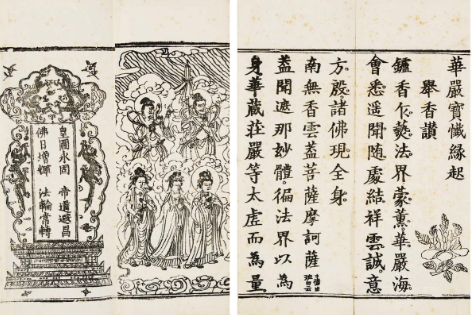 皇圖永固 帝道遐昌
佛日增輝 法輪常轉
華嚴寶懺緣起
舉香讚
鑪香乍爇法界蒙薰華嚴海
會悉遙聞隨處結祥雲誠意
方殷諸佛現全身
南無香雲蓋菩薩摩訶薩
蓋聞遮那妙體徧法界以為
身華藏莊嚴等太虛而為量